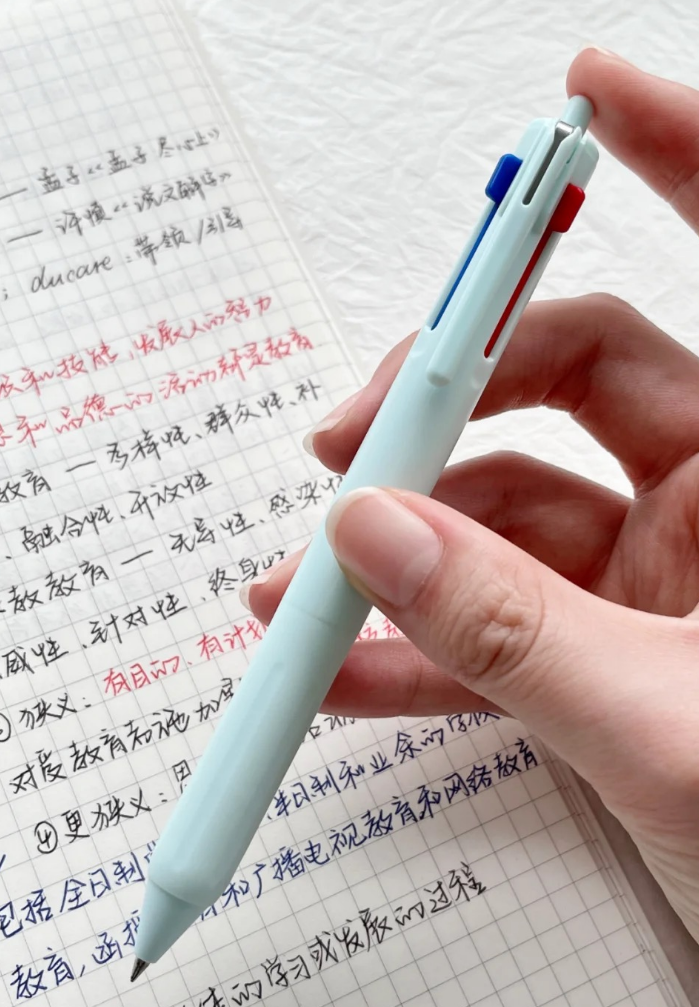 — 孟子《孟子 尽心上》
— 许慎《说文解字》
; ducare : 带领/引导
和技能, 发展人的智力
和品德的活动都是教育
教育 — 多样性、群众性、补
、融合性、开放性
教教育 — 无序性、感染
威性、针对性、终身
狭义: 有目的、有计划
对受教育者施加
④更狭义: 思
包括全日制 半日制和业余的学校
教育, 函授 和广播电视教育和网络教育
的学习或发展的过程